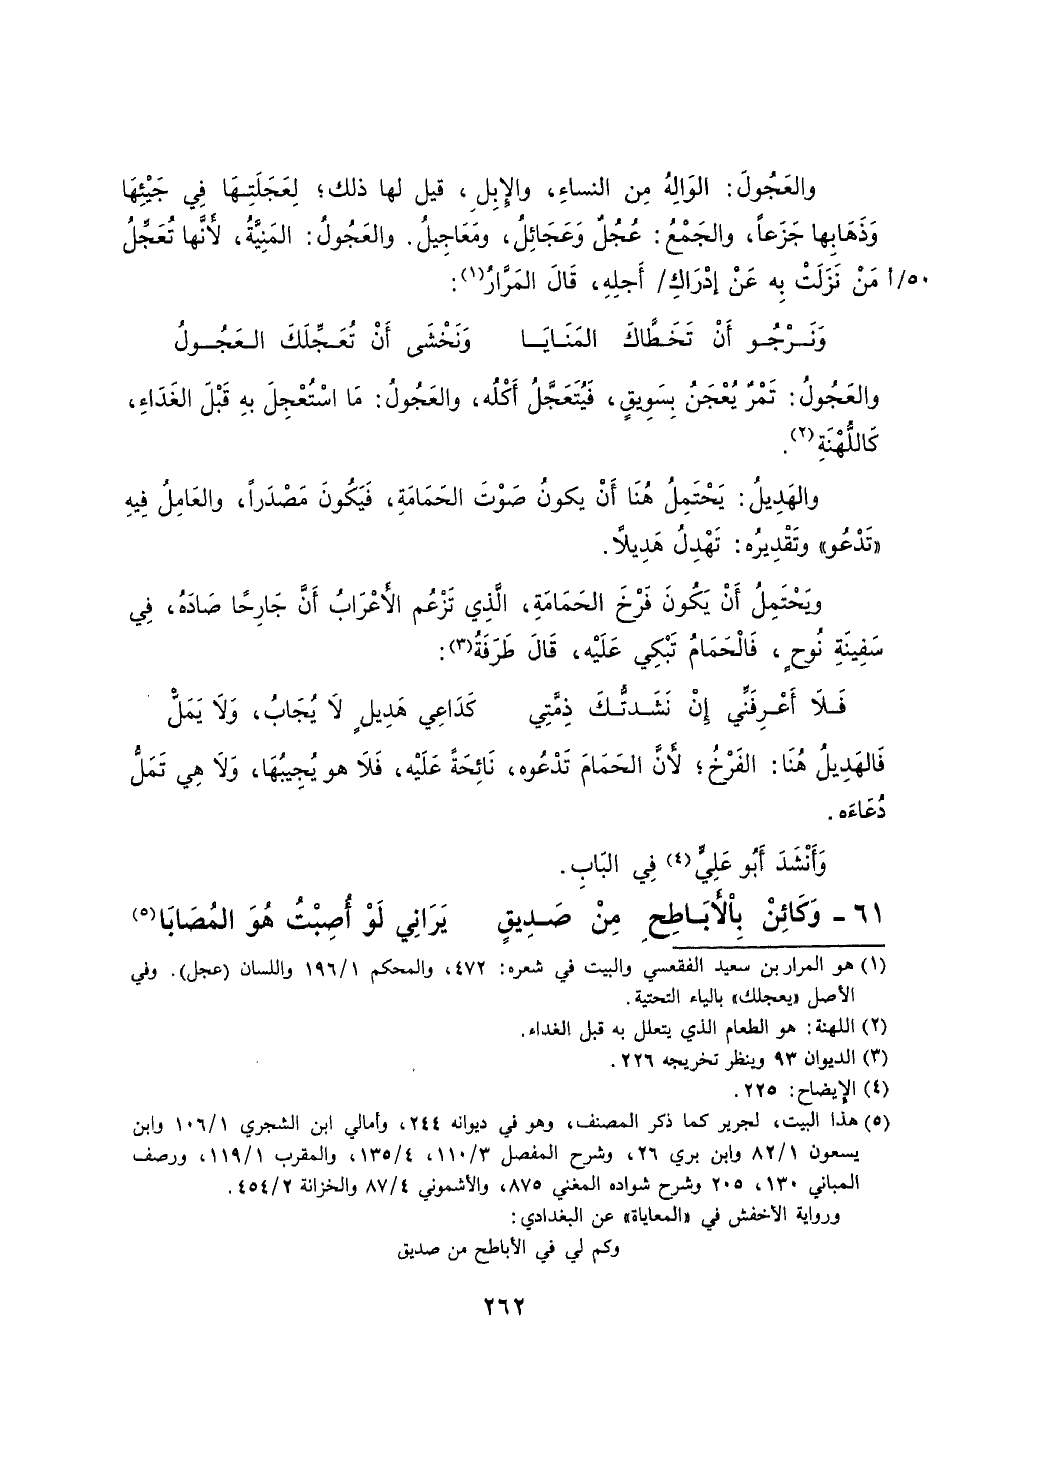 والعَجُولَ: الوَالِهُ مِن النساءِ، والإِبِلِ، قيل لها ذلك؛ لِعَجَلَتِهَا فِي جَيْئِهَا
وَذَهَابِها جَزَعاً، والجَمْعُ: عُجُلٌ وَعَجَائِلُ، ومَعَاجِيلُ. والعَجُولُ: المَنِيَّةُ، لأَنَّها تُعَجِّلُ
٥٠/أ مَنْ نَزَلَتْ بِه عَنْ إِدْرَاكِ/ أَجلِهِ، قَالَ المَرَّارُ(١):
وَنَرْجُو أَنْ تَخَطَّاكَ المَنَايَا وَنَخْشَى أَنْ تُعَجِّلَكَ العَجُولُ
والعَجُولُ: تَمْرٌ يُعْجَنُ بِسَوِيقٍ، فَيُتَعَجَّلُ أَكْلُه، والعَجُولُ: مَا اسْتُعْجِلَ بِهِ قَبْلَ الغَدَاءِ،
كَاللُّهْنَةِ(٢).
والهَدِيلُ: يَحْتَمِلُ هُنَا أَنْ يكونُ صَوْتَ الحَمَامَةِ، فَيَكُونَ مَصْدَراً، والعَامِلُ فِيهِ
«تَدْعُو» وتَقْدِيرُه: تَهْدِلُ هَدِيلاً.
ويَحْتَمِلُ أَنْ يَكُونَ فَرْخَ الحَمَامَةِ، الَّذِي تَزْعُم الأَعْرَابُ أَنَّ جَارِحًا صَادَهُ، فِي
سَفِينَةِ نُوحٍ، فَالْحَمَامُ تَبْكِي عَلَيْه، قَالَ طَرَفَةُ(٣):
فَلَا أَعْرِفَنِّي إِنْ نَشَدتُّكَ ذِمَّتِي كَدَاعِي هَدِيلٍ لَا يُجَابُ، وَلَا يَمَلُّ
فَالهَدِيلُ هُنَا: الفَرْخُ؛ لأَنَّ الحَمَامَ تَدْعُوه، نَائِحَةً عَلَيْه، فَلَا هو يُجِيبُهَا، وَلَا هي تَمَلُّ
دُعَاءَه.
وَأَنْشَدَ أَبُو عَلِيٍّ(٤) فِي البَابِ.
٦١ - وَكَائِنْ بِالْأَبَاطِحِ مِنْ صَدِيقٍ يَرَانِي لَوْ أُصِبْتُ هُوَ المُصَابَا(٥)
(١) هو المرار بن سعيد الفقعسي والبيت في شعره: ٤٧٢، والمحكم ١٩٦/١ واللسان (عجل). وفي
الأصل «يعجلك» بالياء التحتية.
(٢) اللهنة: هو الطعام الذي يتعلل به قبل الغداء.
(٣) الديوان ٩٣ وينظر تخريجه ٢٢٦.
(٤) الإيضاح: ٢٢٥.
(٥) هذا البيت، لجرير كما ذكر المصنف، وهو في ديوانه ٢٤٤، وأمالي ابن الشجري ١٠٦/١ وابن
يسعون ٨٢/١ وابن بري ٢٦، وشرح المفصل ١١٠/٣، ١٣٥/٤، والمقرب ١١٩/١، ورصف
المباني ١٣٠، ٢٠٥ وشرح شواده المغني ٨٧٥، والأشموني ٨٧/٤ والخزانة ٤٥٤/٢.
ورواية الأخفش في «المعاياة» عن البغدادي:
وكم لي في الأباطح من صديق
٢٦٢